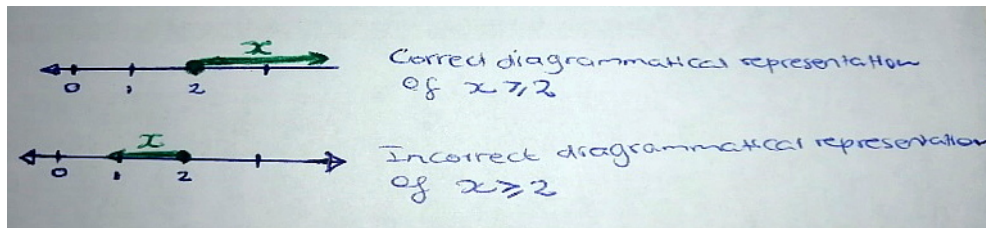 x
Correct diagrammatical representation
0 1 2
of x ⩾ 2
x
Incorrect diagrammatical representation
0 1 2
of x ⩾ 2